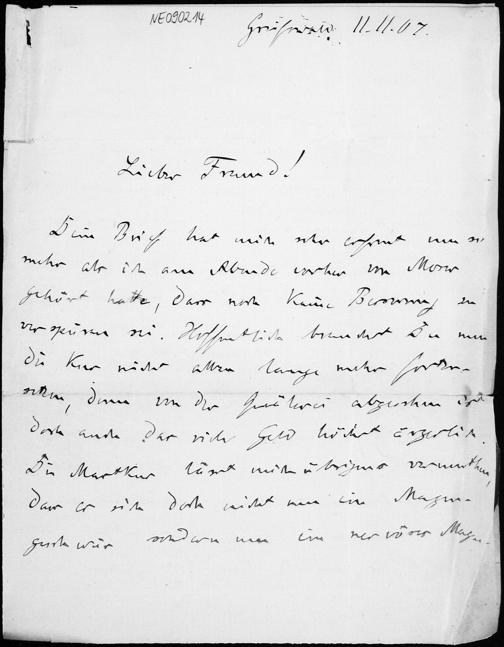 NE090214
Greifswald 11.11.07.
Lieber Freund!
Dein Brief hat mich sehr erfreut um so
mehr als ich am Abende vorher von Moser
gehört hatte, dass noch keine Besserung zu
verspüren sei. Hoffentlich brauchst Du nun
die Kur nicht allzu lange mehr fortzu-
setzen, denn von der Quälerei abgesehen ist
doch auch das viele Geld höchst ärgerlich.
Die Mastkur lässt mich übrigens vermuthen,
dass es sich doch nicht um ein Magen-
geschwür sondern um ein nervöses Magen-